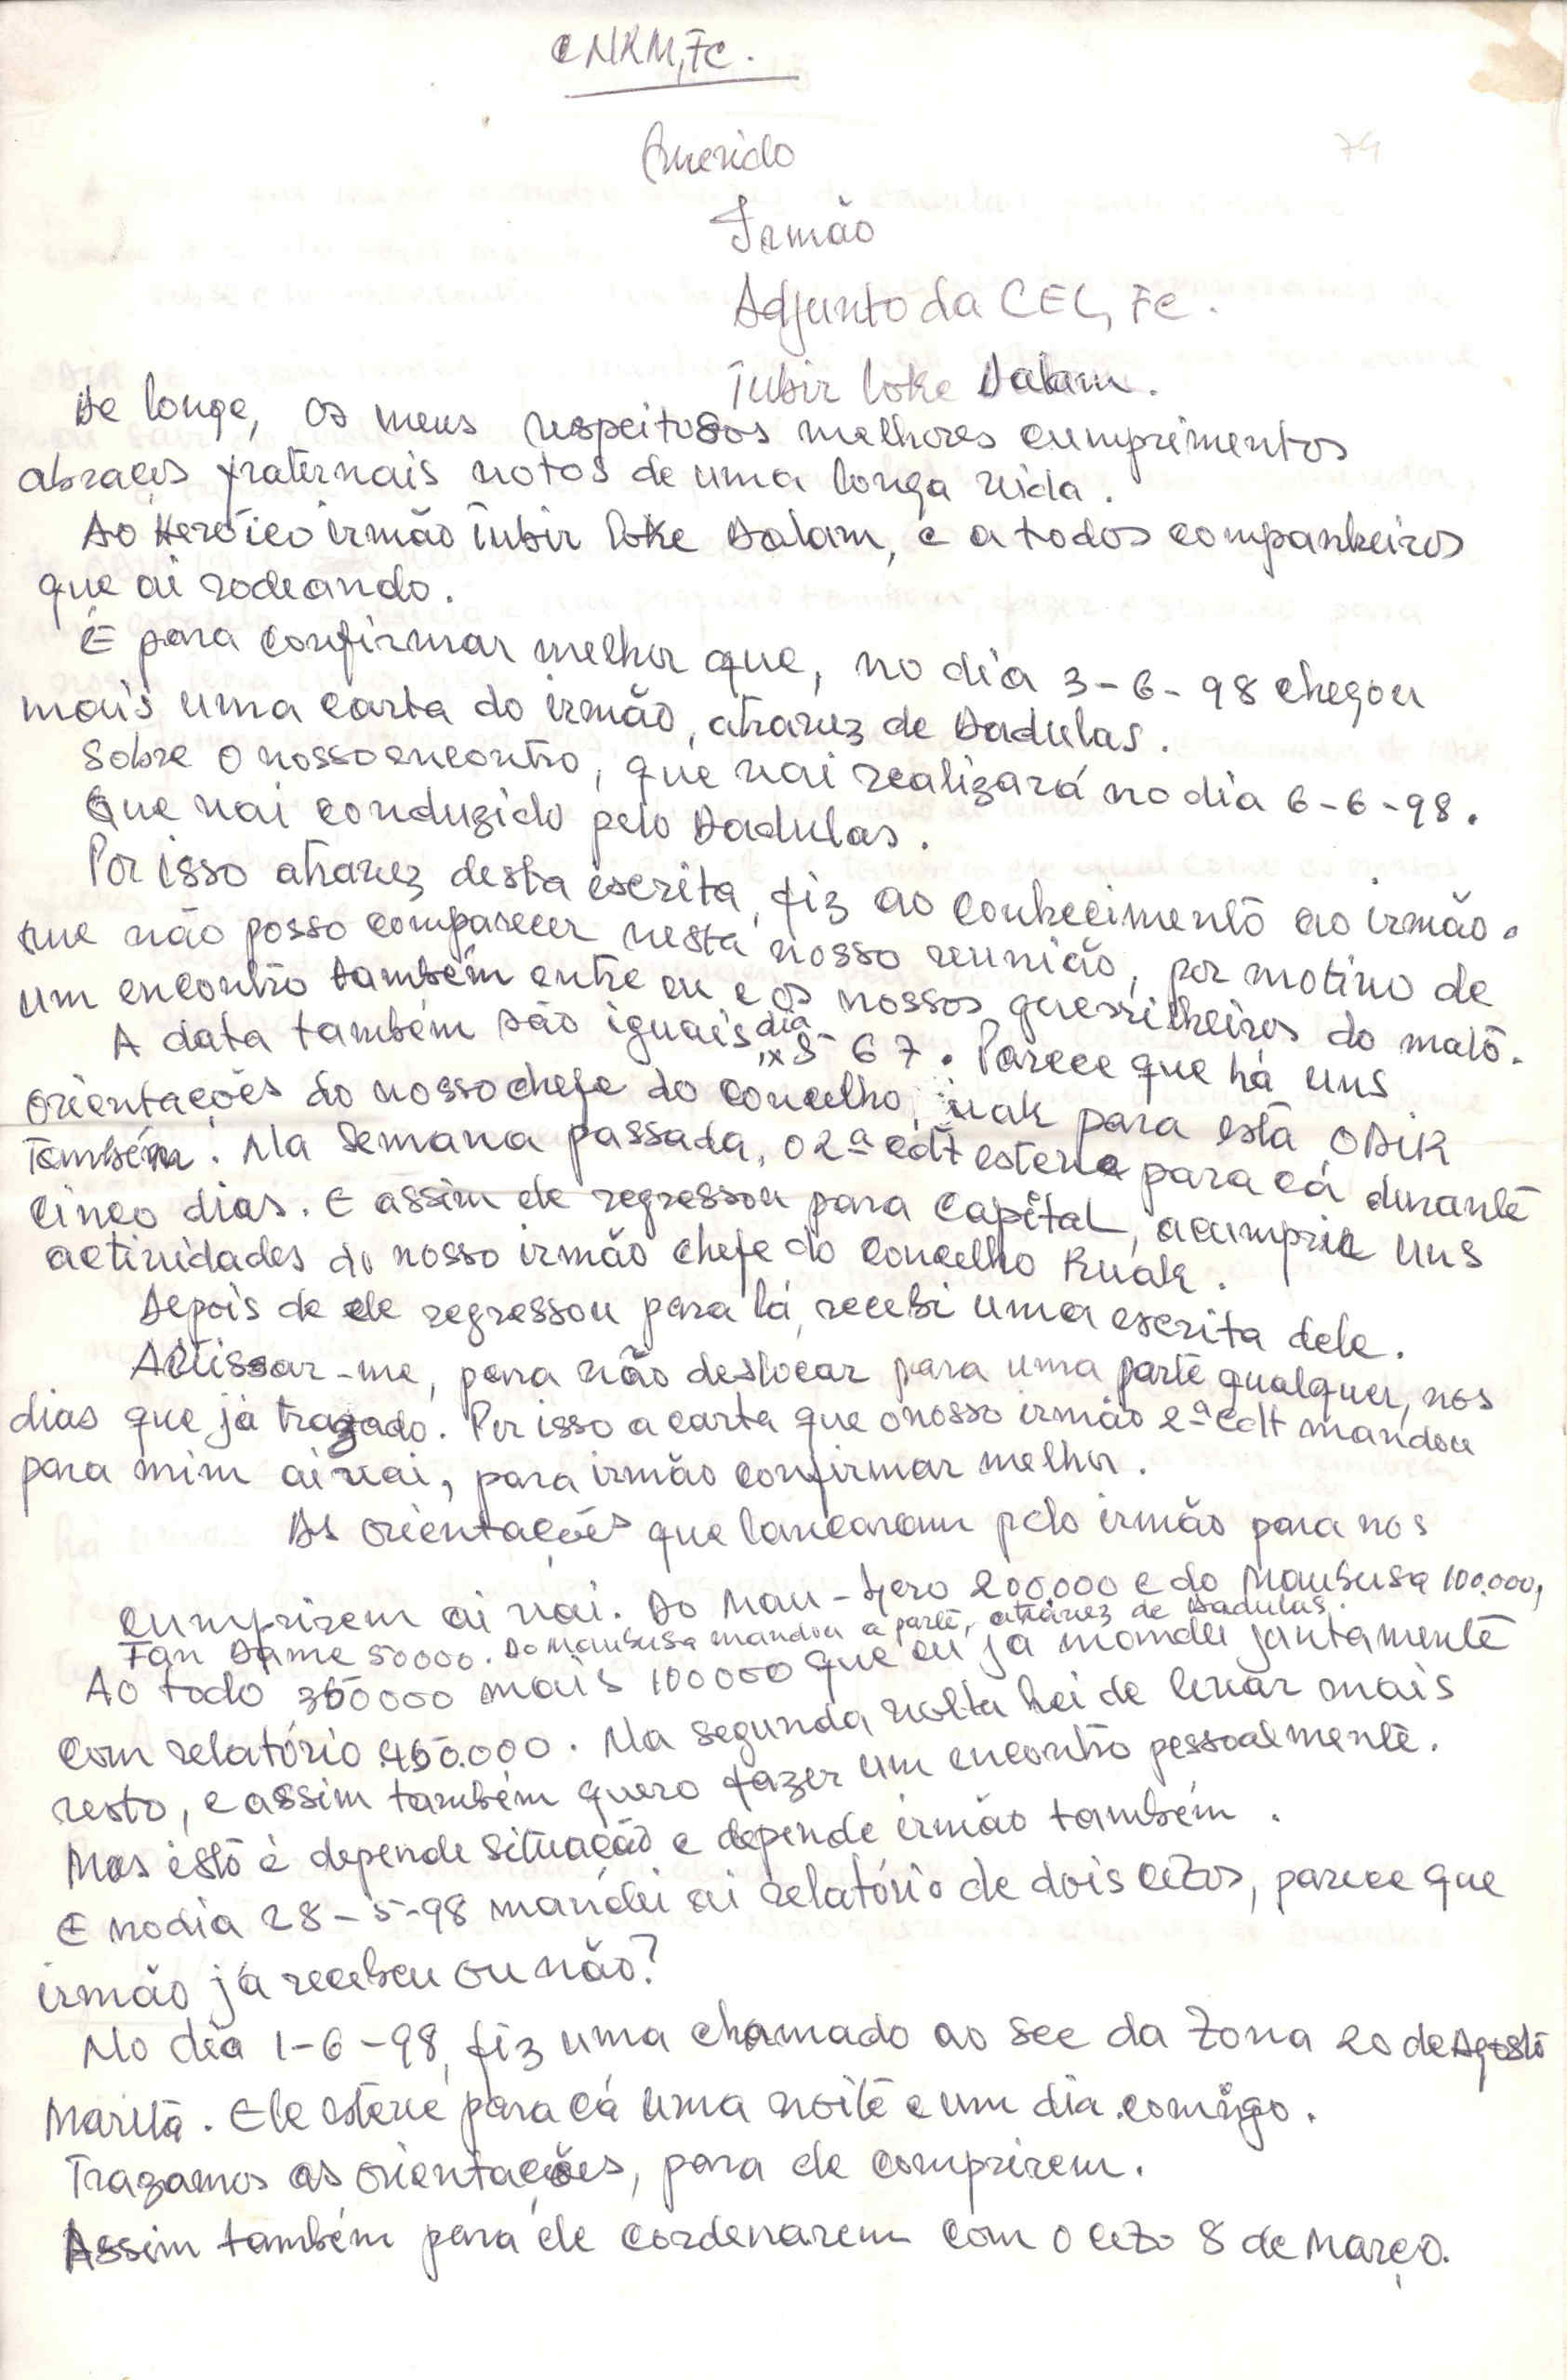 CNRM, FC.
74
Querido
Irmão
Adjunto da CEL, FC.
Tubir Loke Dalam.
De longe, os meus respeitosos melhores cumprimentos
abraços fraternais votos de uma longa vida.
Ao Heroico irmão Tubir Loke Dalam, e a todos companheiros
que ai rodeando.
É para confirmar melhor que, no dia 3-6-98 chegou
mais uma carta do irmão, atravez de Dadulas.
Sobre o nosso encontro, que vai realizará no dia 6-6-98.
Que vai conduzido pelo Dadulas.
Por isso atravez desta escrita, fiz ao conhecimento ao irmão.
que não posso comparecer nesta nosso reunião, por motivo de
um encontro também entre eu e os nossos guerrilheiros do mato.
A data também são iguais dia 5 6 7. Parece que há uns
orientações do nosso chefe do concelho, para está ODIR
também. Na semana passada, o 2ª cdt esteve para cá durante
cinco dias. E assim ele regressou para capital, acumprir uns
actividades do nosso irmão chefe do concelho Ruak.
Depois de ele regressou para lá, recebi uma escrita dele.
Avissar-me, para não deslocar para uma parte qualquer, nos
dias que já trazado. Por isso a carta que o nosso irmão 2ª cdt mandou
para mim ai vai, para irmão confirmar melhor.
As orientações que lancaram pelo irmão para nos
cumprirem ai vai. Do Mau-fero 200.000 e do Maubusa 100.000,
Fan Dame 50000. Do Maubusa mandou a parte, atravez de Dadulas.
Ao todo 350000 mais 100000 que eu já mandei juntamente
com relatório 450.000. Na segunda volta hei de levar mais
resto, e assim também quero fazer um encontro pessoalmente.
Mas isto é depende situação e depende irmão também.
E no dia 28-5-98 mandei ai relatório de dois cezos, parece que
irmão já recebeu ou não?
No dia 1-6-98, fiz uma chamado ao sec da Zona 20 de Agosto
Marita. Ele esteve para cá uma noite e um dia comigo.
Trazamos as orientações, para ele comprirem.
Assim também para ele cordenarem com o cezo 8 de Março.